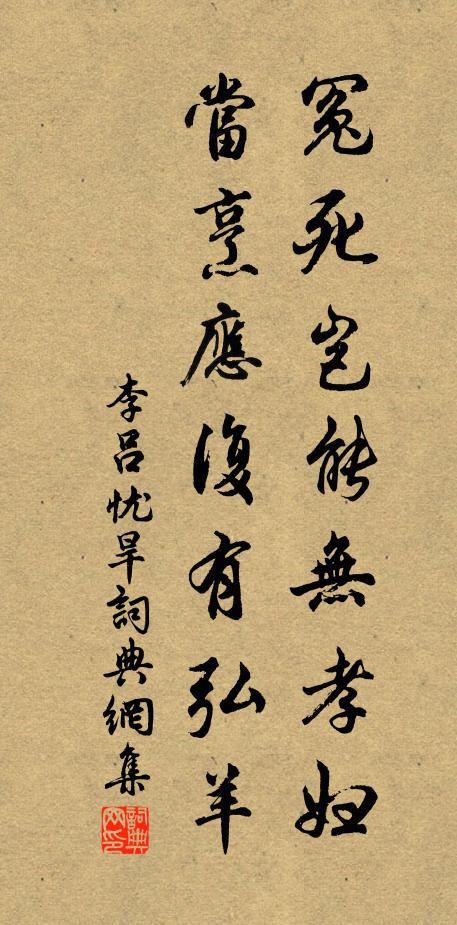 冤死豈能無孝婦
當烹應復有弘羊
李呂忧旱詞典網集
詞典网印